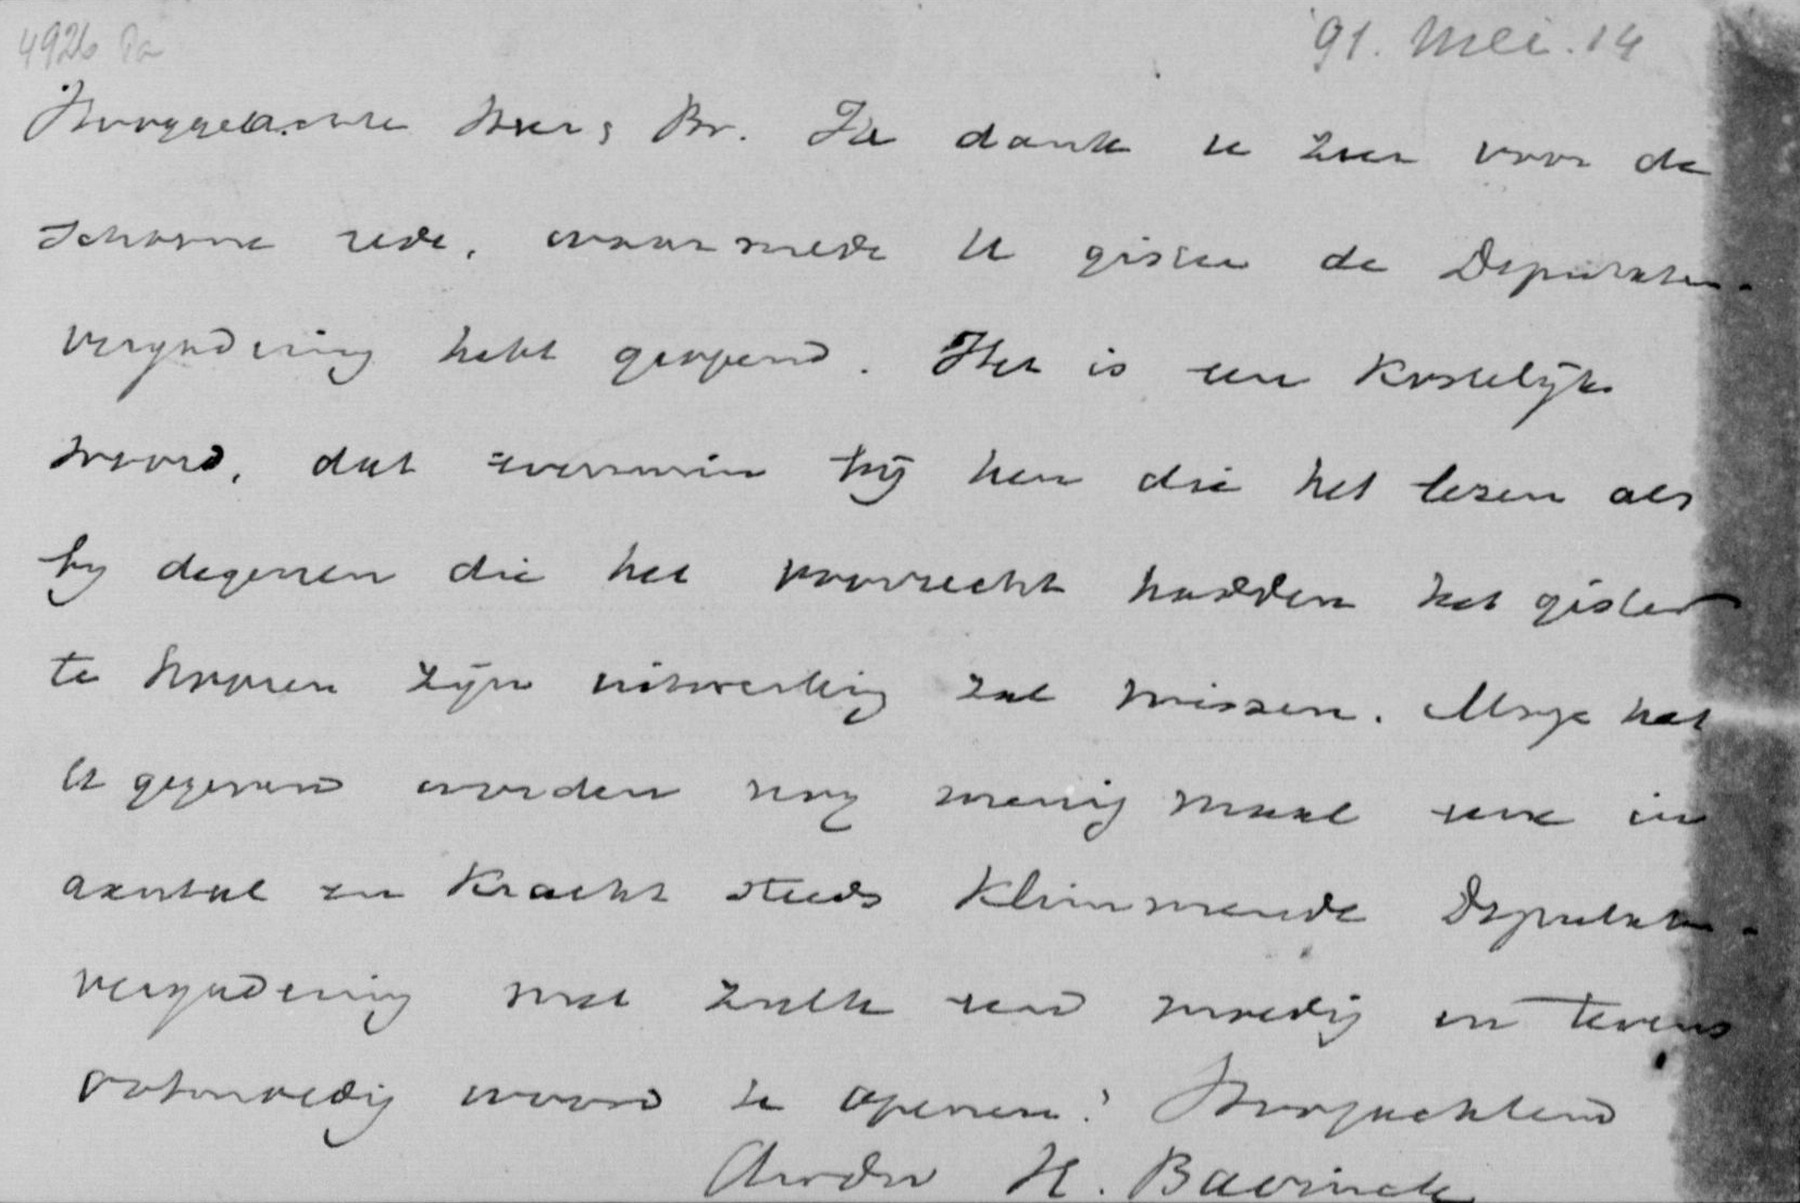 4926 Pa
91. Mei. 14
Hooggeachte Heer & Br. Ik dank u zeer voor de
schoone rede, waarmede U gister de Deputaten-
vergadering hebt geopend. Het is een kostelijk
woord, dat evenmin bij hen die het lezen als
bij degenen die het voorrecht hadden het gister
te hooren zijn uitwerking zal missen. Moge het
U gegeven worden nog menig maal eene in
aantal en kracht steeds klimmende Deputaten-
vergadering met zulk een moedig en tevens
ootmoedig woord te openen! Hoogachtend
H. Bavinck